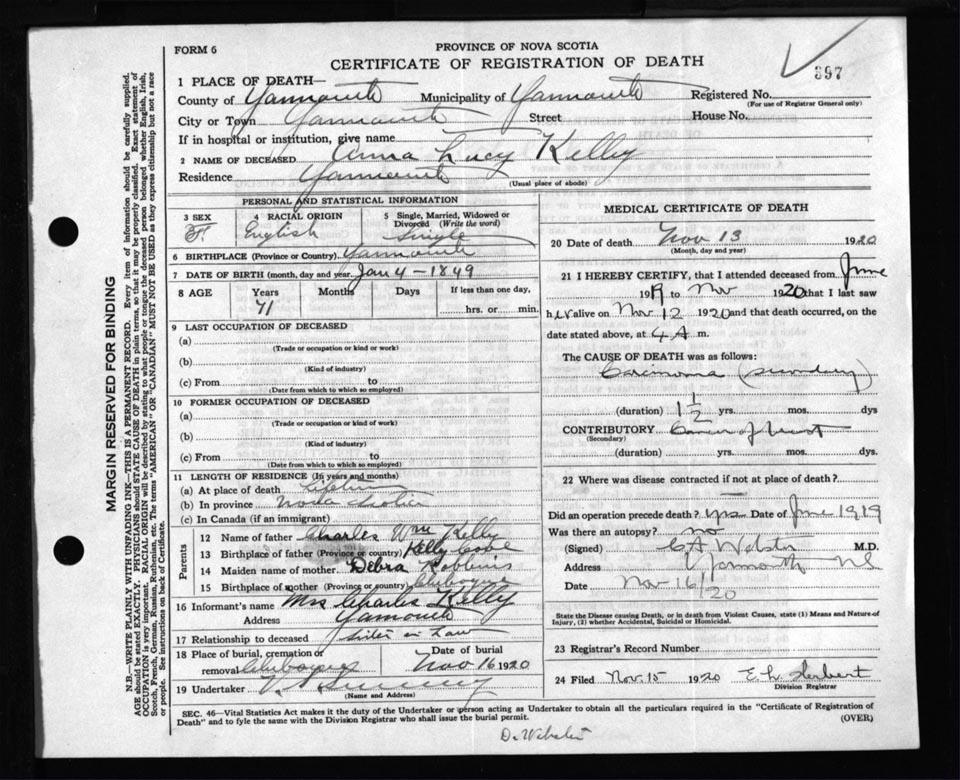 FORM 6
PROVINCE OF NOVA SCOTIA
CERTIFICATE OF REGISTRATION OF DEATH
397
1 PLACE OF DEATH—
County of Yarmouth Municipality of Yarmouth Registered No.
(For use of Registrar General only)
City or Town Yarmouth Street House No.
If in hospital or institution, give name
2 NAME OF DECEASED Anna Lucy Kelley
Residence Yarmouth
(Usual place of abode)
PERSONAL AND STATISTICAL INFORMATION
3 SEX 4 RACIAL ORIGIN 5 Single, Married, Widowed or Divorced (Write the word)
F. English Single
6 BIRTHPLACE (Province or Country) Yarmouth
7 DATE OF BIRTH (month, day and year) Jan 4 - 1849
8 AGE Years Months Days If less than one day,
71 hrs. or min.
9 LAST OCCUPATION OF DECEASED
(a)
(Trade or occupation or kind or work)
(b)
(Kind of industry)
(c) From to
(Date from which to which so employed)
10 FORMER OCCUPATION OF DECEASED
(a)
(Trade or occupation or kind of work)
(b)
(Kind of industry)
(c) From to
(Date from which to which so employed)
11 LENGTH OF RESIDENCE (In years and months)
(a) At place of death Lifetime
(b) In province Nova Scotia
(c) In Canada (if an immigrant)
Parents
12 Name of father Charles Wm Kelly
13 Birthplace of father (Province or country) Kelly Cove
14 Maiden name of mother Debra Robbins
15 Birthplace of mother (Province or country) Chebogue
16 Informant's name Mrs Charles Kelly
Address Yarmouth
17 Relationship to deceased Sister in Law
18 Place of burial, cremation or removal Chebogue Date of burial Nov 16 1920
19 Undertaker
(Name and Address)
MEDICAL CERTIFICATE OF DEATH
20 Date of death Nov 13 1920
(Month, day and year)
21 I HEREBY CERTIFY, that I attended deceased from June
1919 to Nov 1920 that I last saw
her alive on Nov 12 1920 and that death occurred, on
date stated above, at 4 A m.
The CAUSE OF DEATH was as follows:
Carcinoma (secondary)
(duration) 1 1/2 yrs. mos. dys
CONTRIBUTORY Cancer of breast
(Secondary)
(duration) yrs. mos. dys.
22 Where was disease contracted if not at place of death?
—
Did an operation precede death? yes Date of June 1919
Was there an autopsy? no
(Signed) C A Webster M.D.
Address Yarmouth NS
Date Nov 16/20
State the Disease causing Death, or in death from Violent Causes, state (1) Means and Nature of
Injury, (2) whether Accidental, Suicidal or Homicidal.
23 Registrar's Record Number
24 Filed Nov. 15 1920 E. L. Herbert
Division Registrar
SEC. 46—Vital Statistics Act makes it the duty of the Undertaker or person acting as Undertaker to obtain all the particulars required in the "Certificate of Registration of
Death" and to fyle the same with the Division Registrar who shall issue the burial permit. (OVER)
Dr. Webster
MARGIN RESERVED FOR BINDING
N.B.—WRITE PLAINLY WITH UNFADING INK—THIS IS A PERMANENT RECORD. Every item of information should be carefully supplied.
AGE should be stated EXACTLY. PHYSICIANS should STATE CAUSE OF DEATH in plain terms, so that it may be properly classified. Exact statement of
OCCUPATION is very important. RACIAL ORIGIN will be described by stating to what people or tongue the deceased person belonged whether English, Irish,
Scotch, French, German, Russian, Ruthenian, etc. The terms "AMERICAN" OR "CANADIAN" MUST NOT BE USED as they express citizenship but not a race
or people. See instructions on back of Certificate.